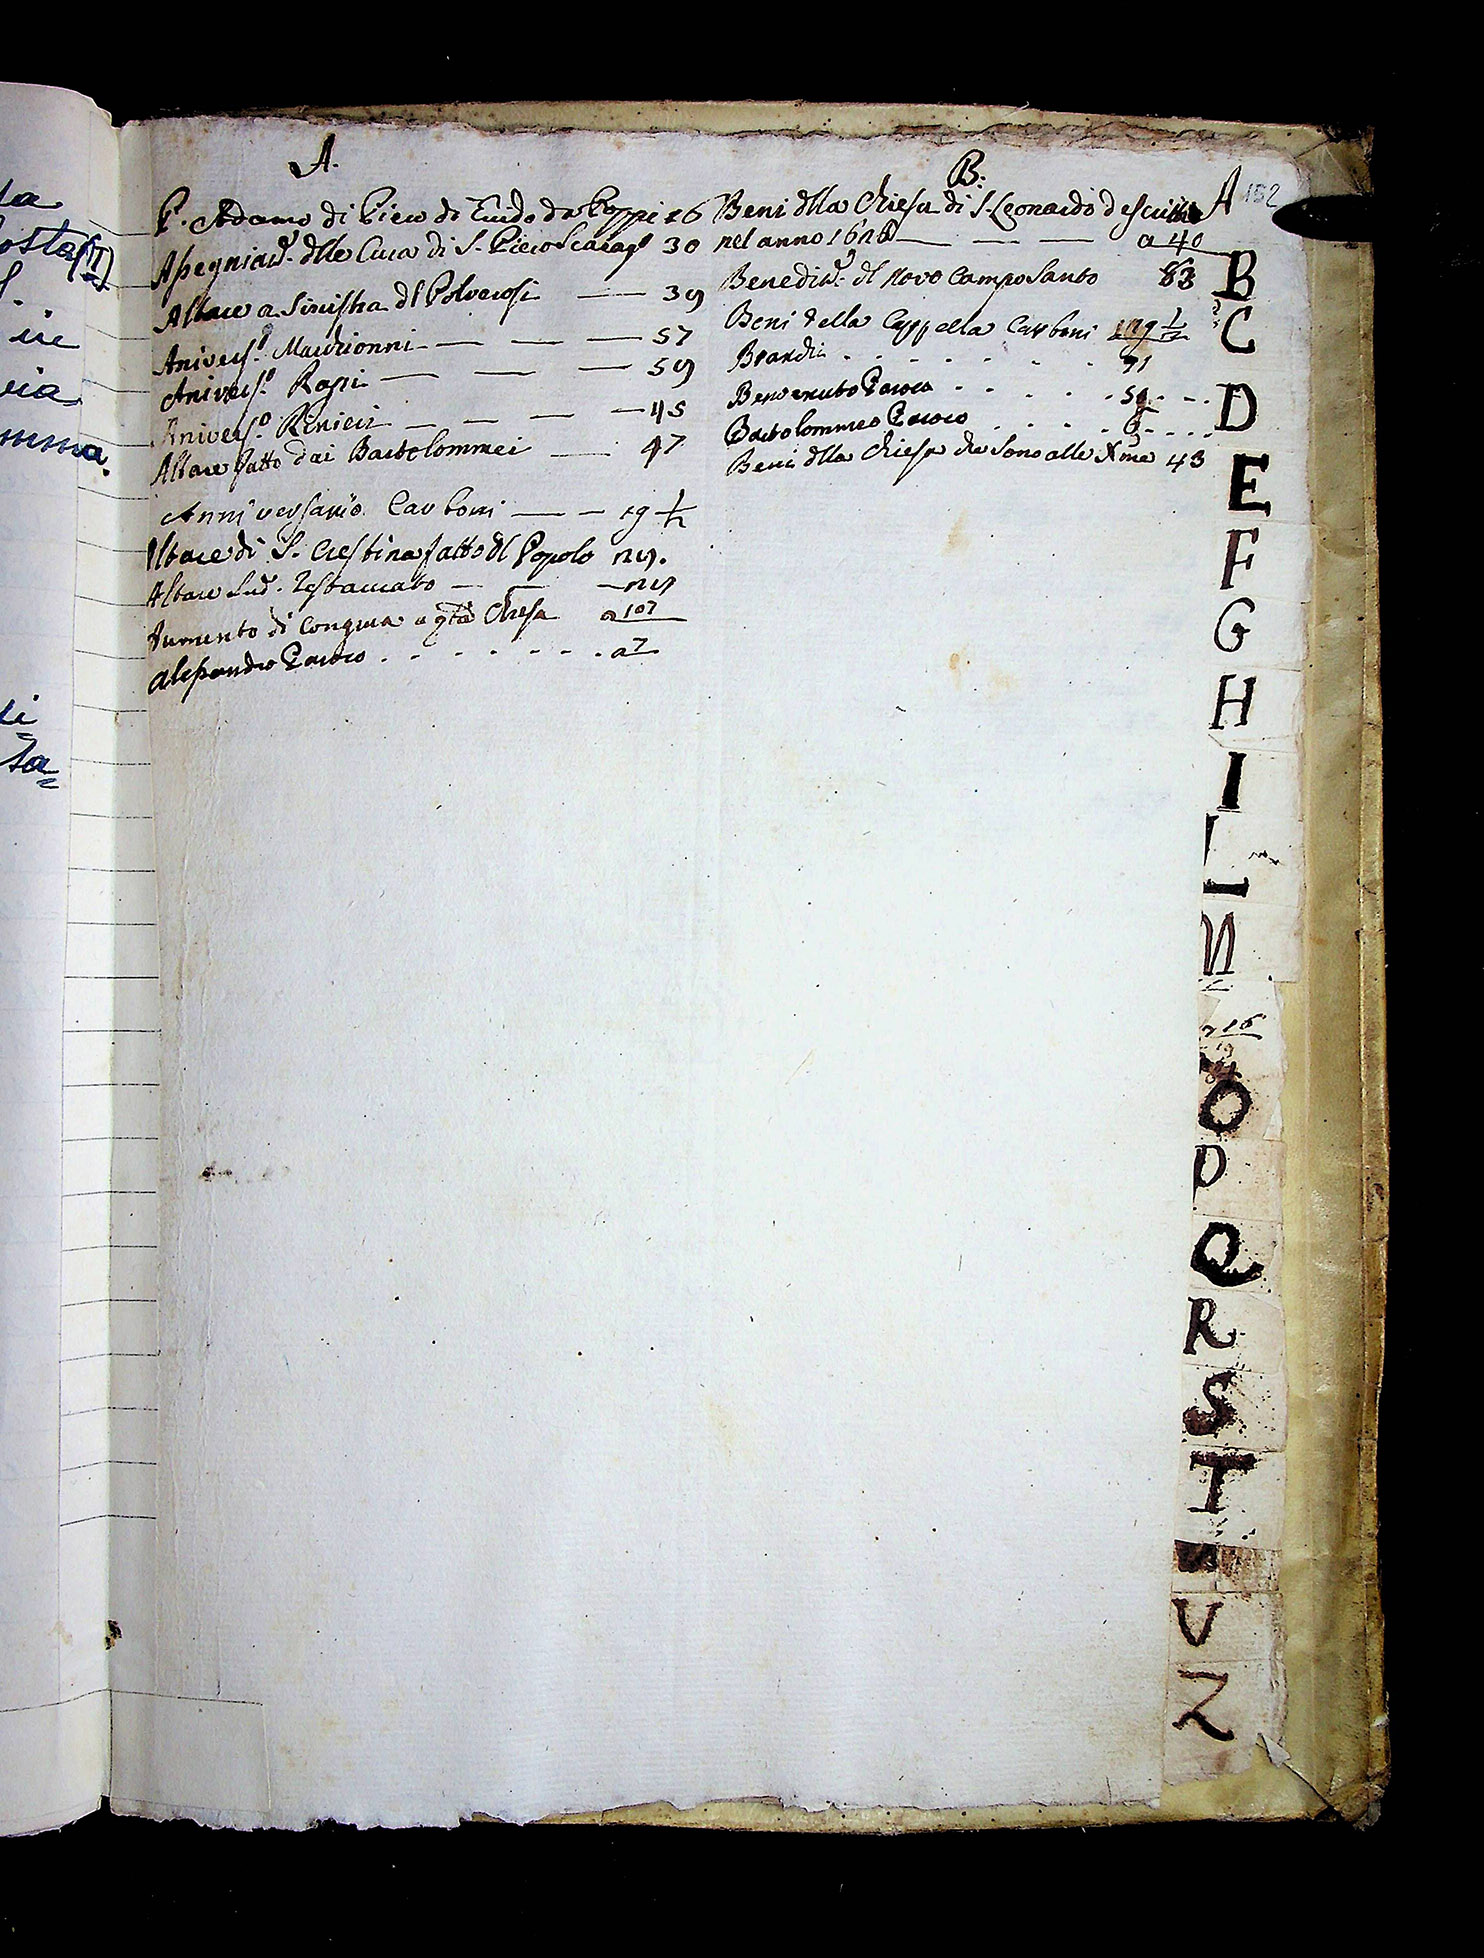 A.
P. Adamo di Piero di Guido da Poppi 26
Assegniaz. dlle Cura di S. Piero Scarag.o 30
Altare a Sinistra dl Polverosi 39
Anivers.o Maurionni 57
Anivers.o Rossi 59
Anivers.o Renieri 45
Altare fatto dai Bartolommei 47
Anniversario Carboni 19 1/2
Altare di S. Crestina fatto dl Popolo 29.
Altare Sud. restaurato
Aumento di Congrua a qta Chiesa a 107
Alessandro Paroco a 7
B:
Beni dlla Chiesa di S. Leonardo d
nel anno 1626 a 40
Benediz. dl novo Campo Santo 83
Beni della Cappella Carboni 119 1/2
Brandi 71
Benvenuto Paroco
Bartolommeo Paroco
Beni dlla Chiesa che sono alle Xme 43
152
la
osta (II)
in
ria
mma.
di
ta
A
B
C
D
E
F
G
H
I
L
M
16
19
O
P
Q
R
S
T
V
Z